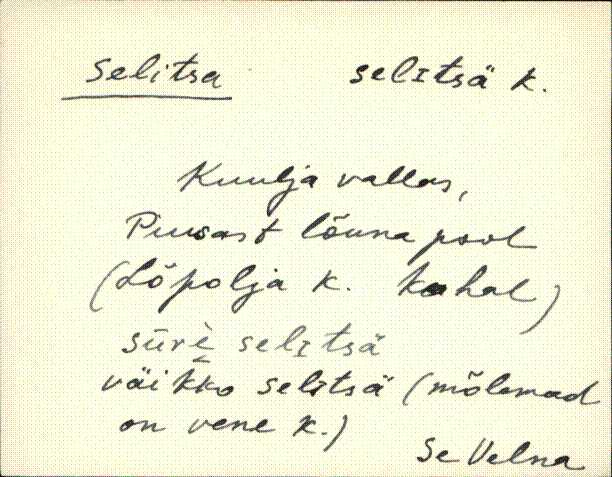 Selitsa selɪtsä k.
Kuulja vallas,
Piusast lõuna pool
(Lõpolja k. kohal)
sūrè selɪtsä
väikko selɪtsä (mõlemad
on vene k.)
Se Velna